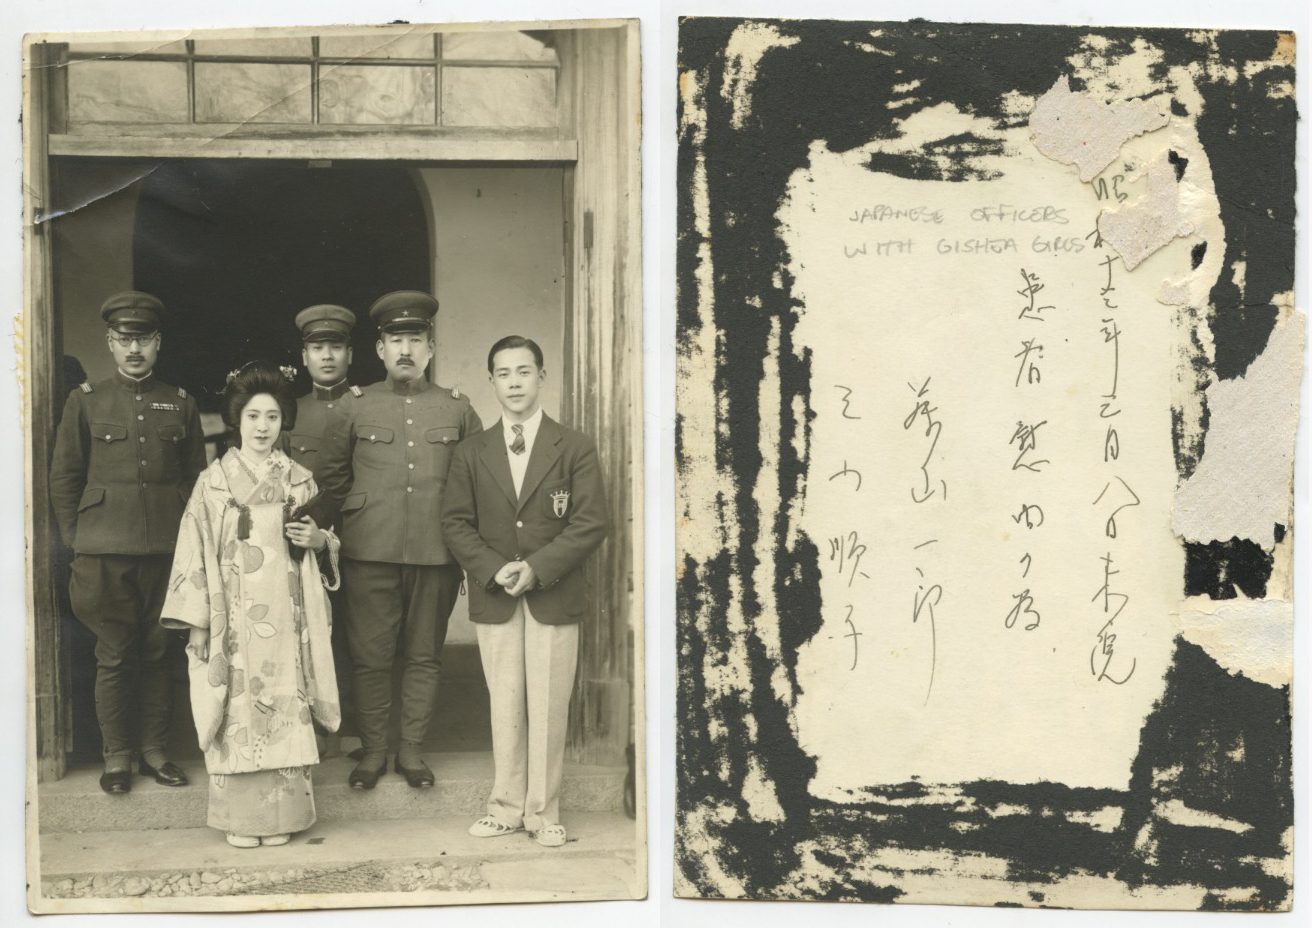 JAPANESE OFFICERS
WITH GISHEA GIRLS
昭和十三年三月八日来院
患者慰問ノ為
藤山一郎
三門順子